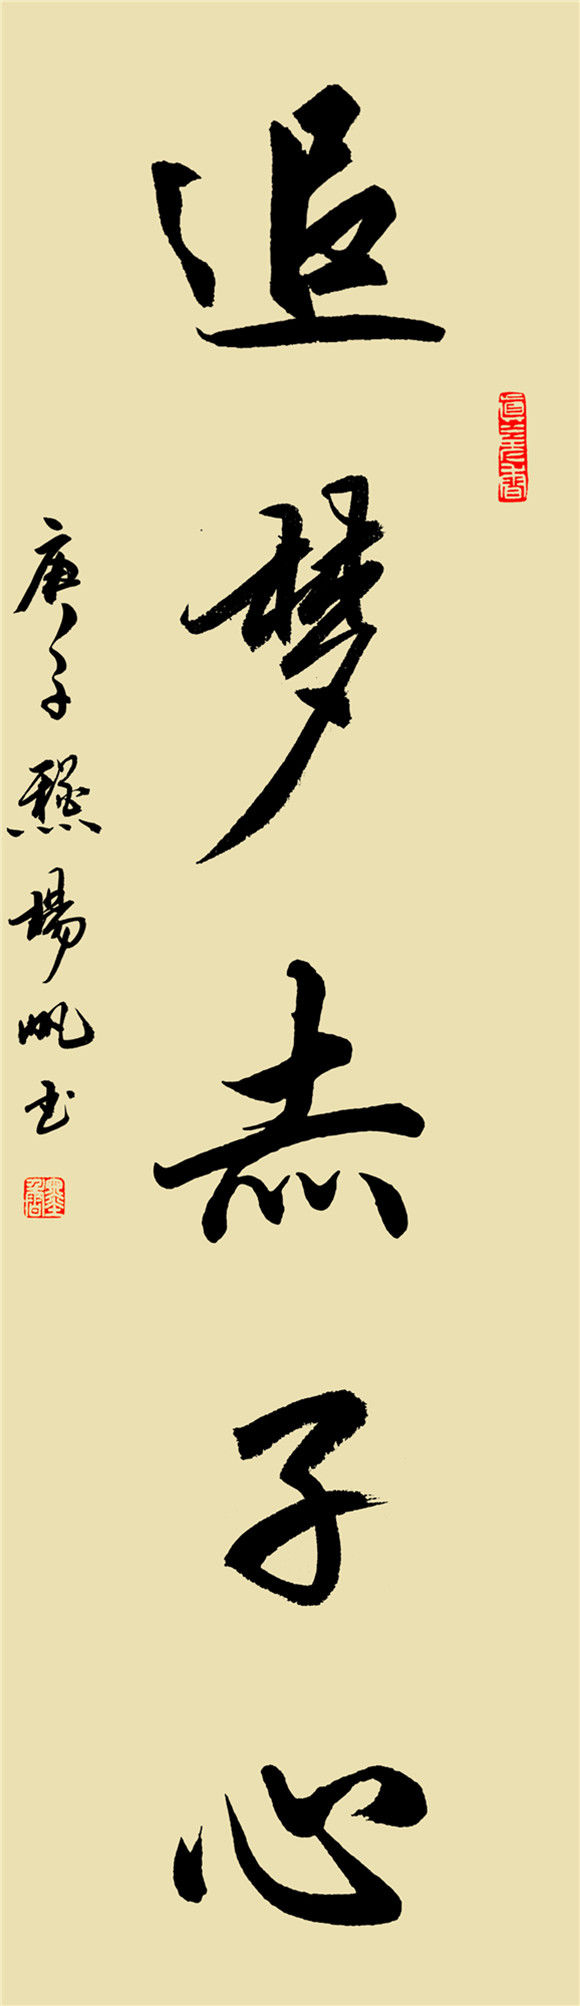 追梦赤子心
庚子 杨帆书